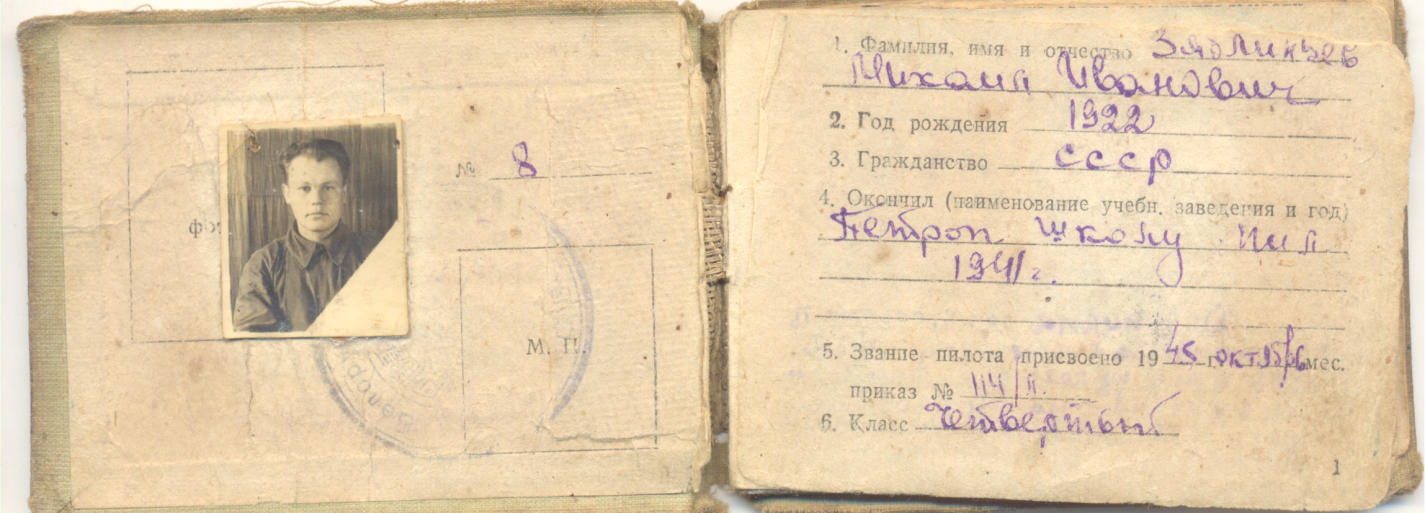 фо
№ 8
М. П.
1. Фамилия, имя и отчество Зяблинцев
Михаил Иванович
2. Год рождения 1922
3. Гражданство СССР
4. Окончил (наименование учебн. заведения и год)
Петроп школу пил
1941 г.
5. Звание пилота присвоено 1945 г. октябрь мес.
приказ № 114/п.
6. Класс Четвертый
1